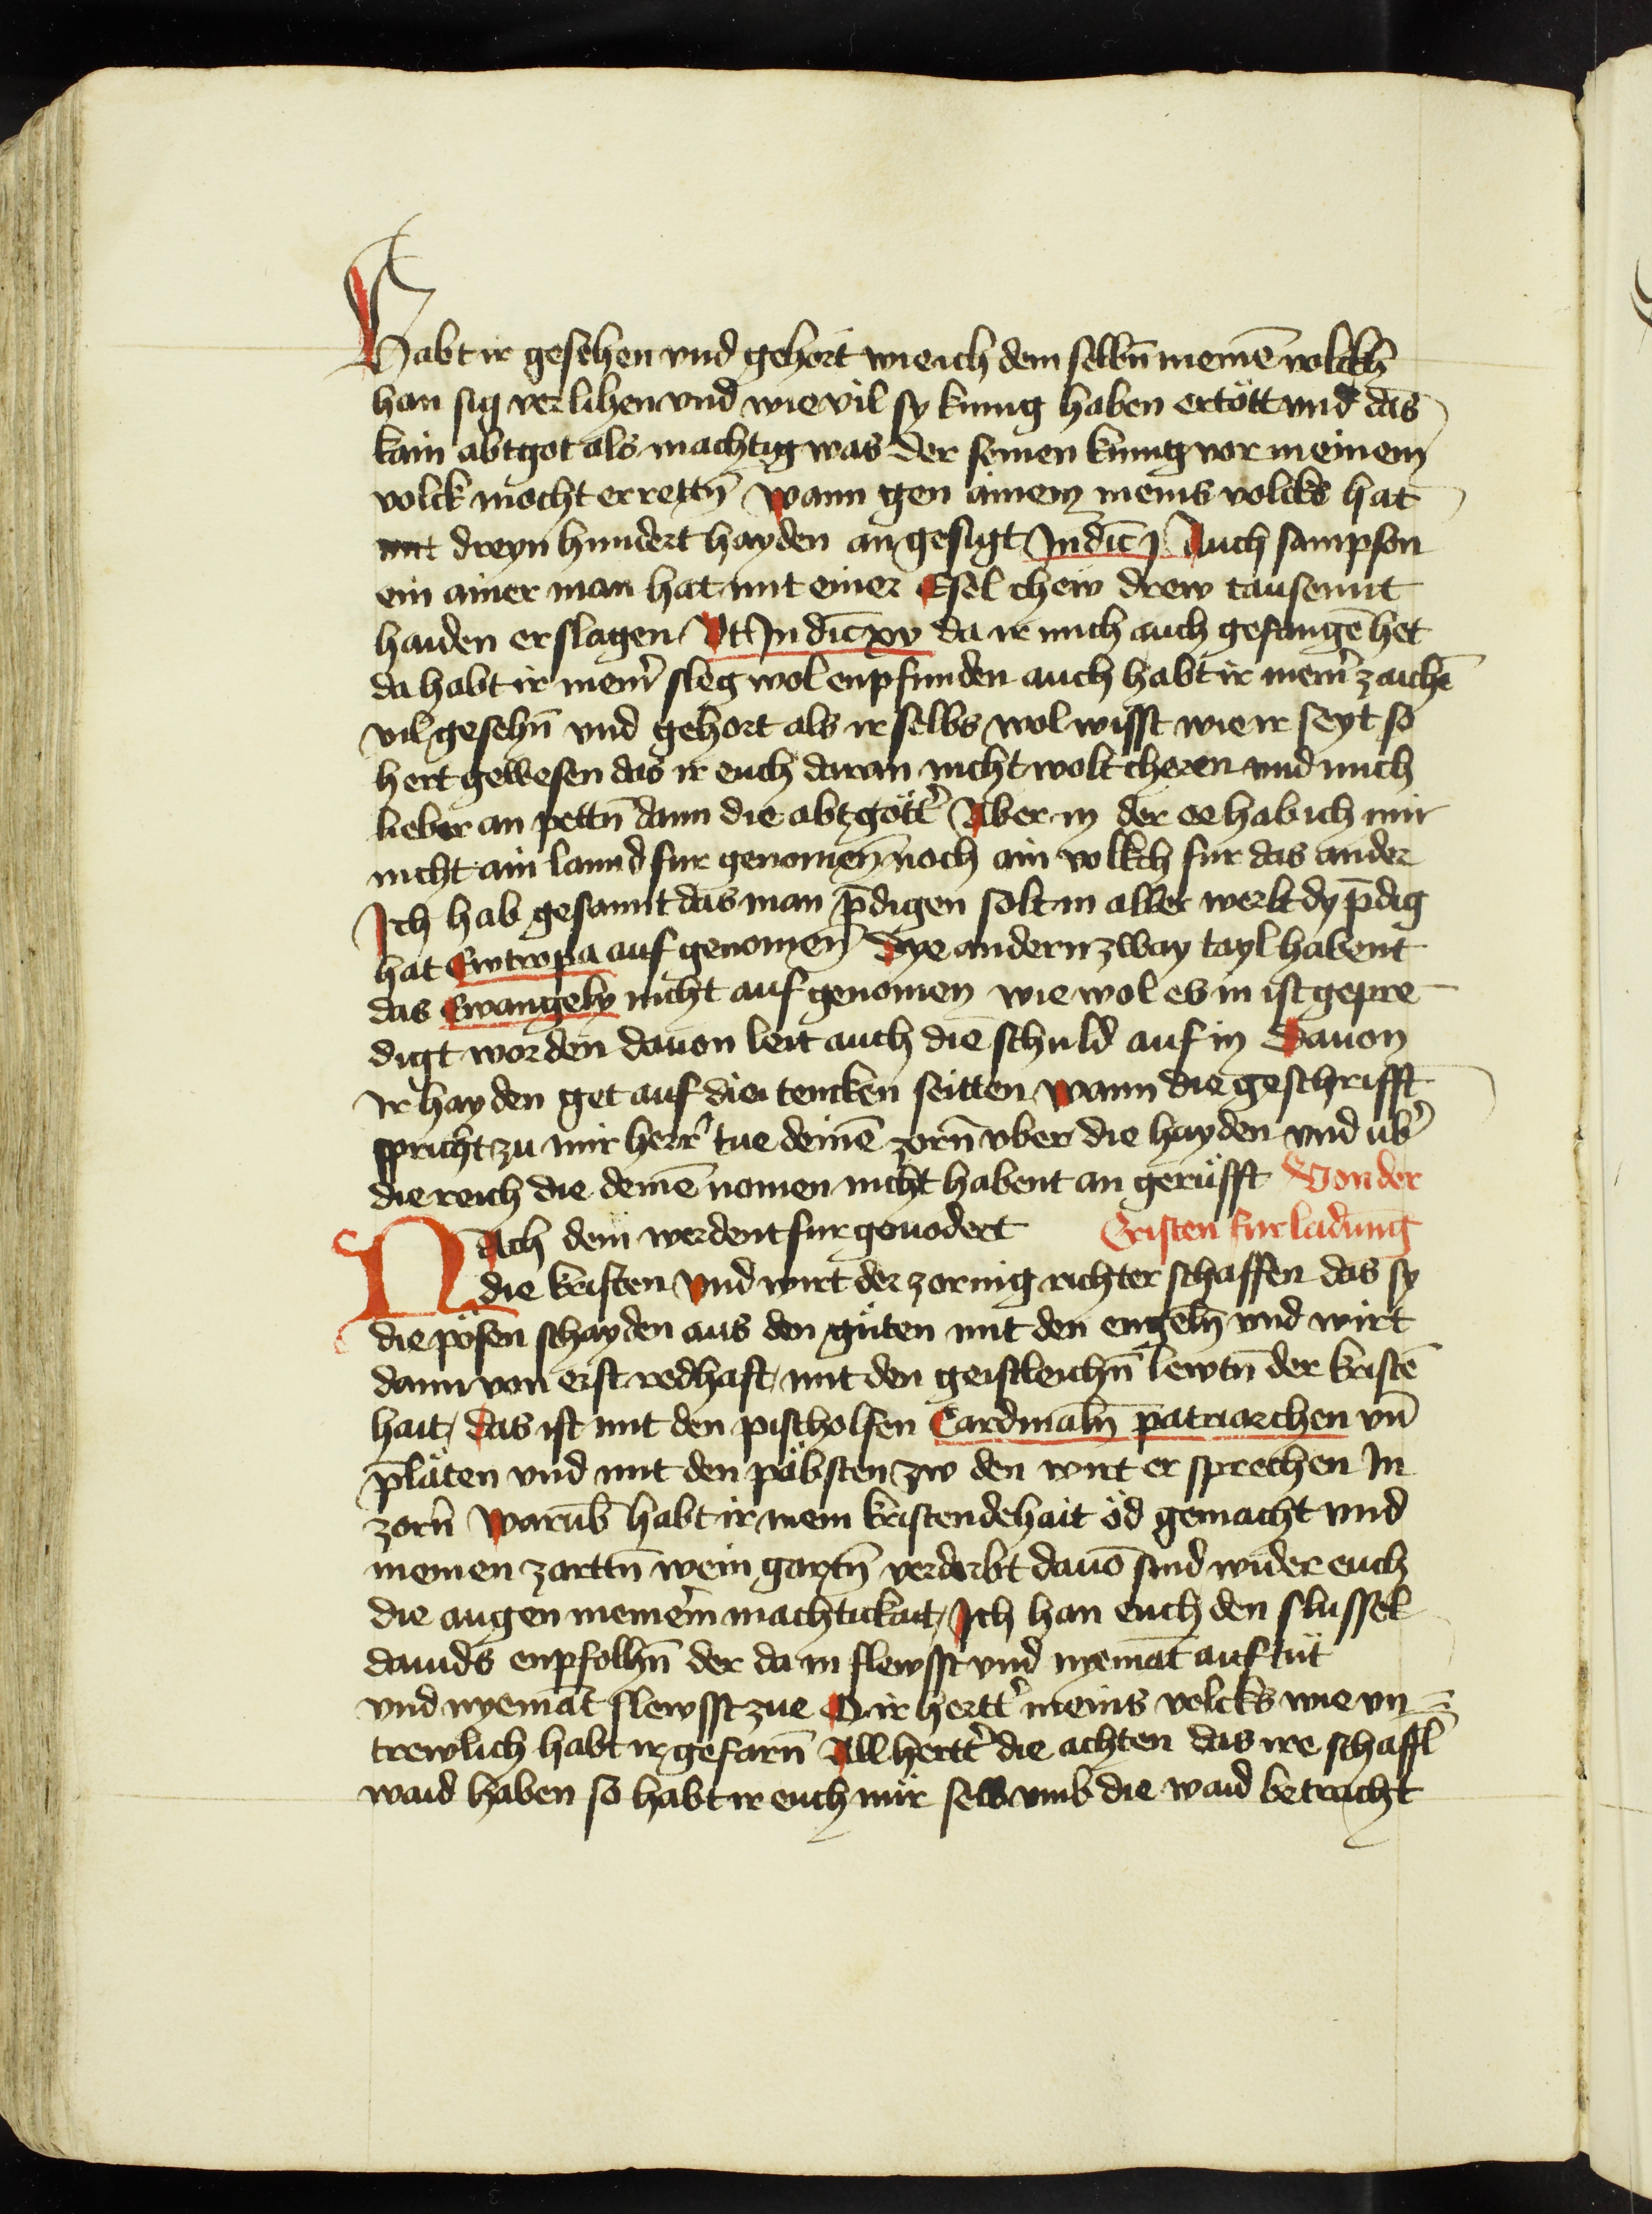 Habt ir gesehen vnd gehort wie ich dem selbn̄ meinē volckh
han sig verlihen vnd wie vil sy kunig haben ertött vnd das
kain abtgot als machtig was der seinen kunig vor meinem
volck mocht errettn̄ wann gen ainem meins volcks hat
mit dreyn hundert hayden an gesigt Judic̄ j Auch sampson
ein ainer man hat mit einer Esel chew drew tausennt
haiden erslagen Vt Judic̄ xv da ir mich auch gefangē het
da habt ir meīr sleg wol enpfunden auch habt ir meīr zaichē
vil gesehn̄ vnd gehort als ir selbs wol wisst wie ir seyt so
hert gewesen das ir euch daran nicht wolt cheren vnd mich
lieber an pettn̄ dann die abtgött̄ Aber in der ee hab ich mir
nicht ain lannd fur genomen noch ain volkch fur das ander
Ich hab gesannt das man p̄digen solt in aller werlt dy p̄dig
hat Ewropa auf genomen Dye andern zway tayl habent
das Ewangely nicht auf genomen wie wol es in ist gepre
digt worden dauon leit auch die schuld auf in Dauon
Ir hayden get auf die tencken seitten wann die geschrifft
spricht zu mir herr tue deinē zorn̄ vber die hayden vnd ub̄
die reich die deinē nomen nicht habent an gerüfft Von der
Nach dem werdent fur geuodert Cristen fur ladung
die kristen vnd wirt der zornig richter schaffen das sy
die pösen schayden aus den güten mit den engeln̄ vnd wirt
dann von erst redhaft mit den geistleichn̄ lewtn̄ der kristē
hait das ist mit den pischolfen Cardinaln̄ patriarchen vn̄
p̄läten vnd mit den päbsten zw den wirt er sprechen In
zorn̄ Warūb habt ir mein kristendehait öd gemacht vnd
meinen zarttn̄ wein gartn̄ verderbt dauō sind wider euch
die augen meinēm machtickait Ich han euch den slussel
dauids enpfolhn̄ der da in slewsst vnd nyemāt auf tüt
vnd nyemāt slewsst zue O ir hertt̄ meins volcks wie vn
trewlich habt ir gefarn̄ All hertt̄ die achten das ire schaffl̄
waid haben so habt ir euch nür selb vmb die waid betracht